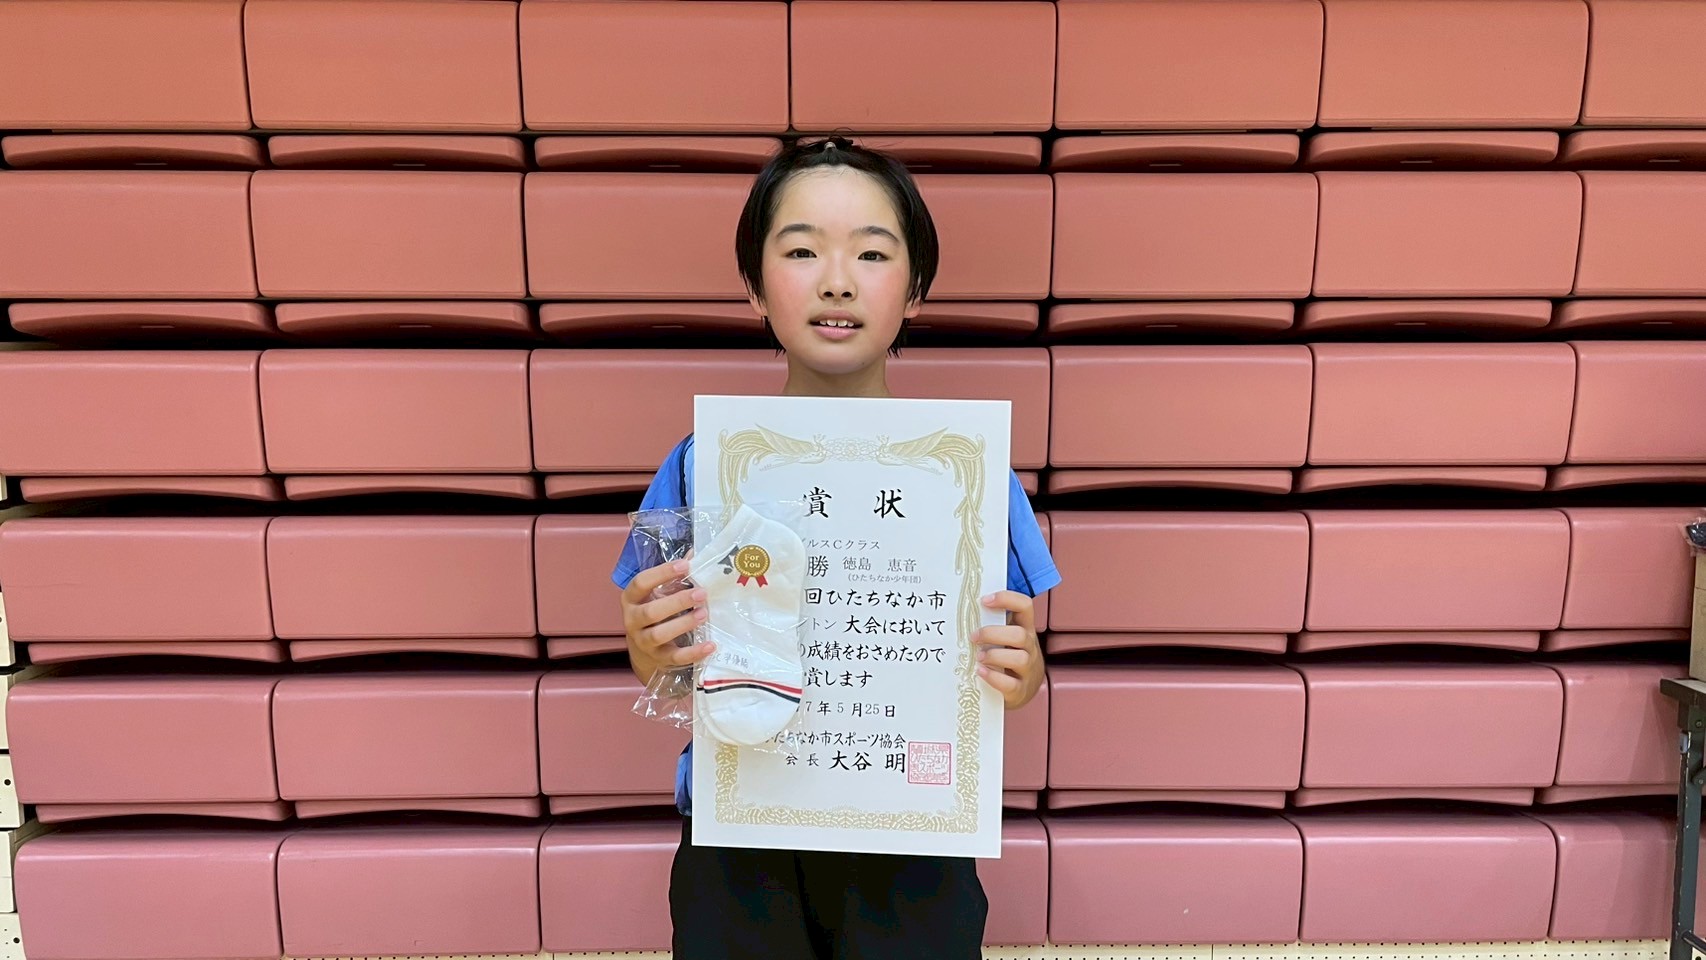 賞 状
ルスCクラス
勝 徳島 恵音
(ひたちなか少年団)
回ひたちなか市
トン 大会において
の成績をおさめたので
賞します
7年5月25日
たちなか市スポーツ協会
会長 大谷 明
For
You
準優勝